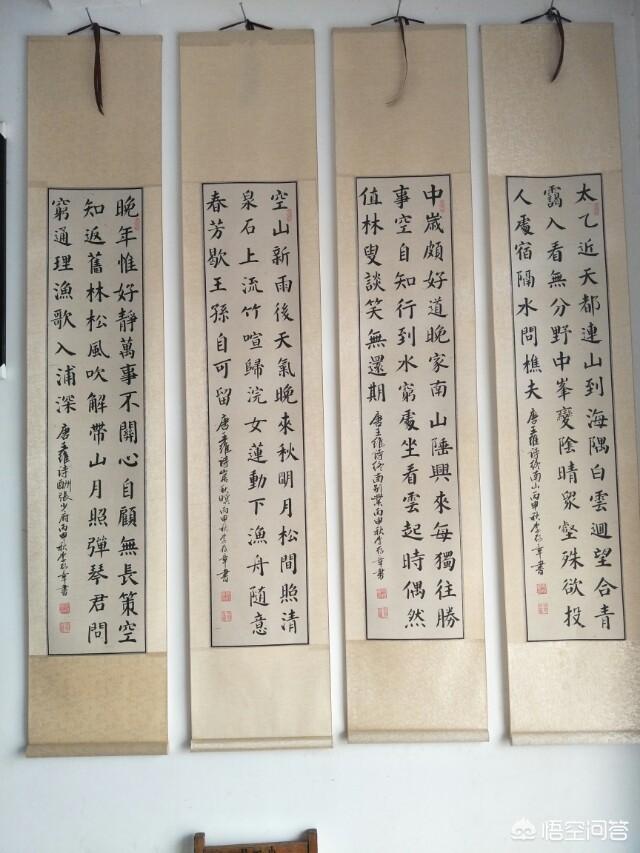 太乙近天都連山到海隅白雲迴望合青
靄入看無分野中峯變陰晴眾壑殊欲投
人處宿隔水問樵夫
唐王維詩終南山丙申秋李章書
中歲頗好道晚家南山陲興來每獨往勝
事空自知行到水窮處坐看雲起時偶然
值林叟談笑無還期
唐王維詩終南別業丙申秋李章書
空山新雨後天氣晚來秋明月松間照清
泉石上流竹喧歸浣女蓮動下漁舟隨意
春芳歇王孫自可留
唐王維詩山居秋暝丙申秋李章書
晚年惟好靜萬事不關心自顧無長策空
知返舊林松風吹解帶山月照彈琴君問
窮通理漁歌入浦深
唐王維詩酬張少府丙申秋李章書
悟空问答